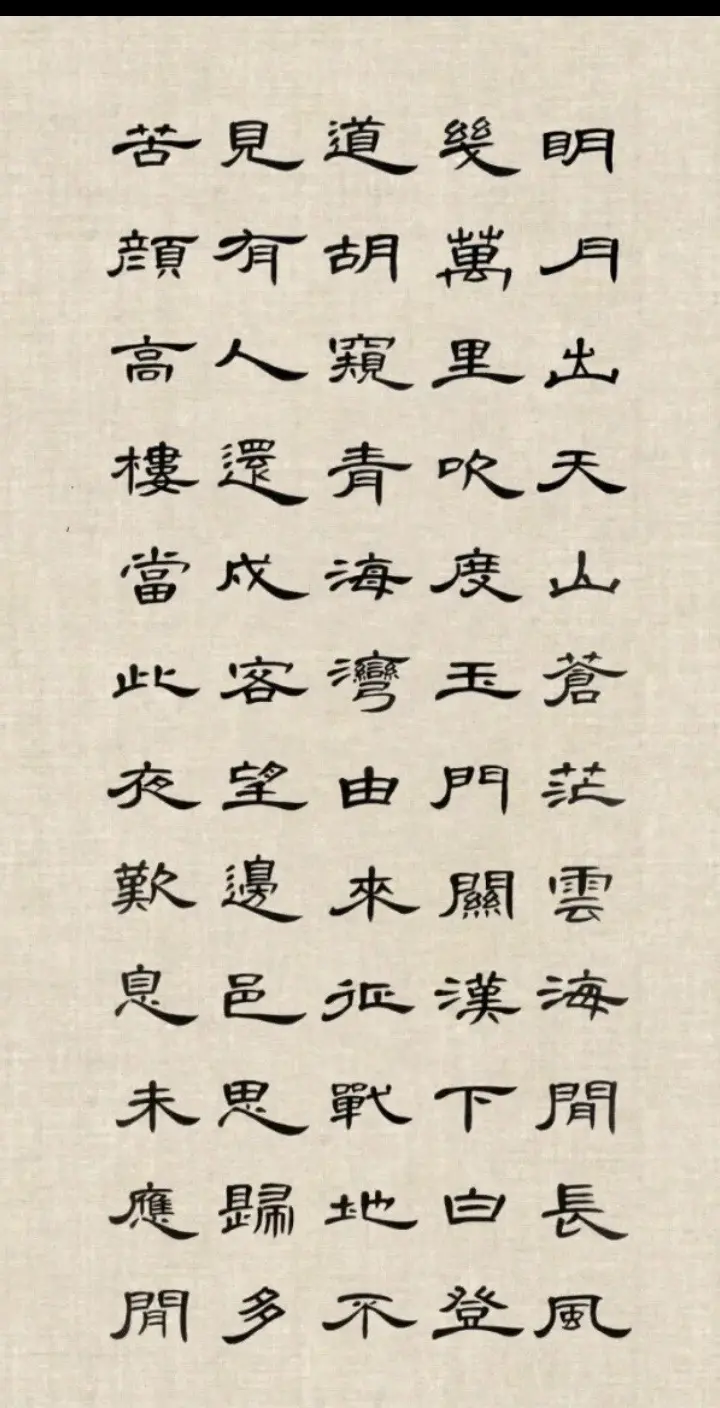 明月出天山蒼茫雲海間長風
幾萬里吹度玉門關漢下白登
道胡窺青海灣由來征戰地不
見有人還戍客望邊邑思歸多
苦顏高樓當此夜歎息未應閒